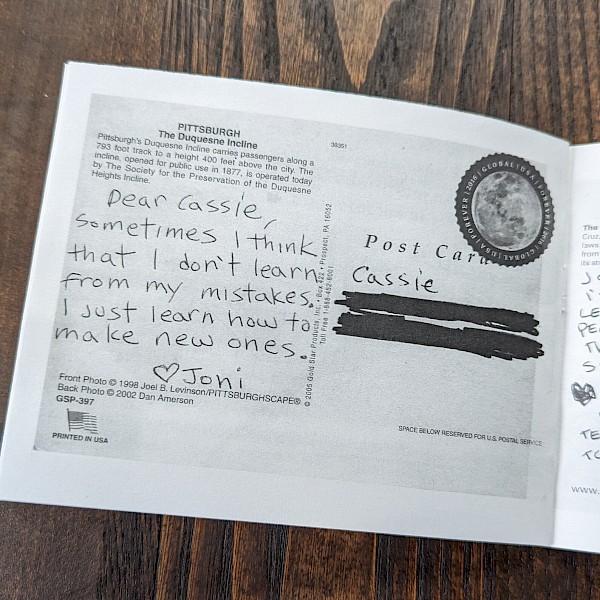 PITTSBURGH
The Duquesne Incline
Pittsburgh's Duquesne Incline carries passengers along a
793 foot track to a height 400 feet above the city. The
incline, opened for public use in 1877, is operated today
by The Society for the Preservation of the Duquesne
Heights Incline.
38351
Dear Cassie,
sometimes I think
that I don't learn
from my mistakes.
I just learn how to
make new ones.
♡ Joni
Front Photo © 1998 Joel B. Levinson/PITTSBURGHSCAPE®
Back Photo © 2002 Dan Amerson
GSP-397
PRINTED IN USA
© 2005 Gold Star Products, Inc. • Box 422 • Prospect, PA 16052
Toll Free 1-888-452-6001
GLOBAL | USA | FOREVER | 2016 | GLOBAL | USA | FOREVER | 2016
Post Card
Cassie
SPACE BELOW RESERVED FOR U.S. POSTAL SERVICE
The
Cruz,
laws
from
its
www.